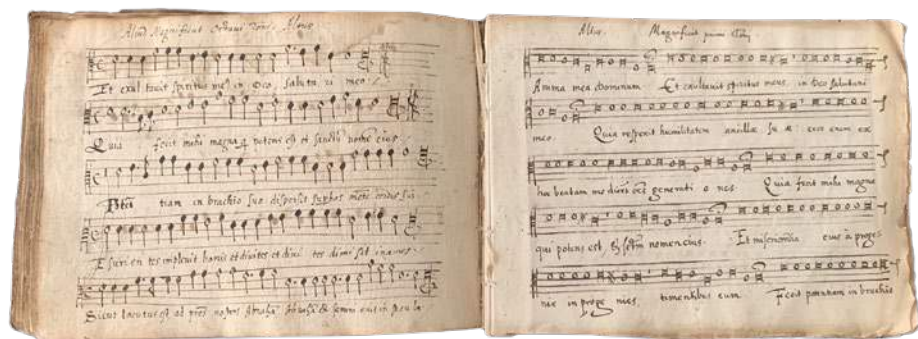 Aliud Magnificat Octavi Toni. Altus
Et exul tavit spiritus meus in Deo saluta ri meo.
Quia fecit mihi magna q potens est et sanctu nome eius
tiam in brachio suo dispersit supbos mete cordis sui
Esurien tes implevit bonis et divites et divi tes dimi sit inanes
Sicut locutus est ad pres nostros Abraha Abraha & semini eius in secula
Altus. Magnificat primi Toni
Anima mea Dominum Et exultavit spiritus meus in Deo salutari
meo. Quia respexit humilitatem ancillae su ae: ecce enim ex
hoc beatam me dicet oēs generati o nes. Quia fecit mihi magna
qui potens est & sctm nomen eius. Et misericordia eius à proge
nie in proge nies, timentibus eum. Fecit potentiam in brachio